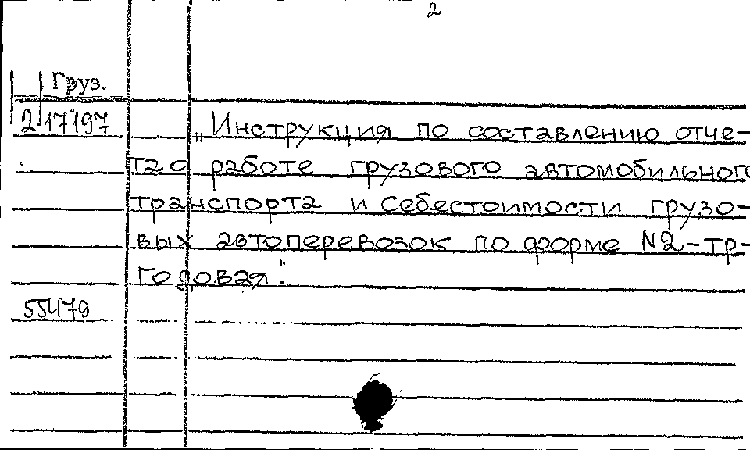 2
Груз.
2 17197
„Инструкция по составлению отче-
та о работе грузового автомобильного
транспорта и себестоимости грузо-
вых автоперевозок по форме N2-тр-
годовая".
55479